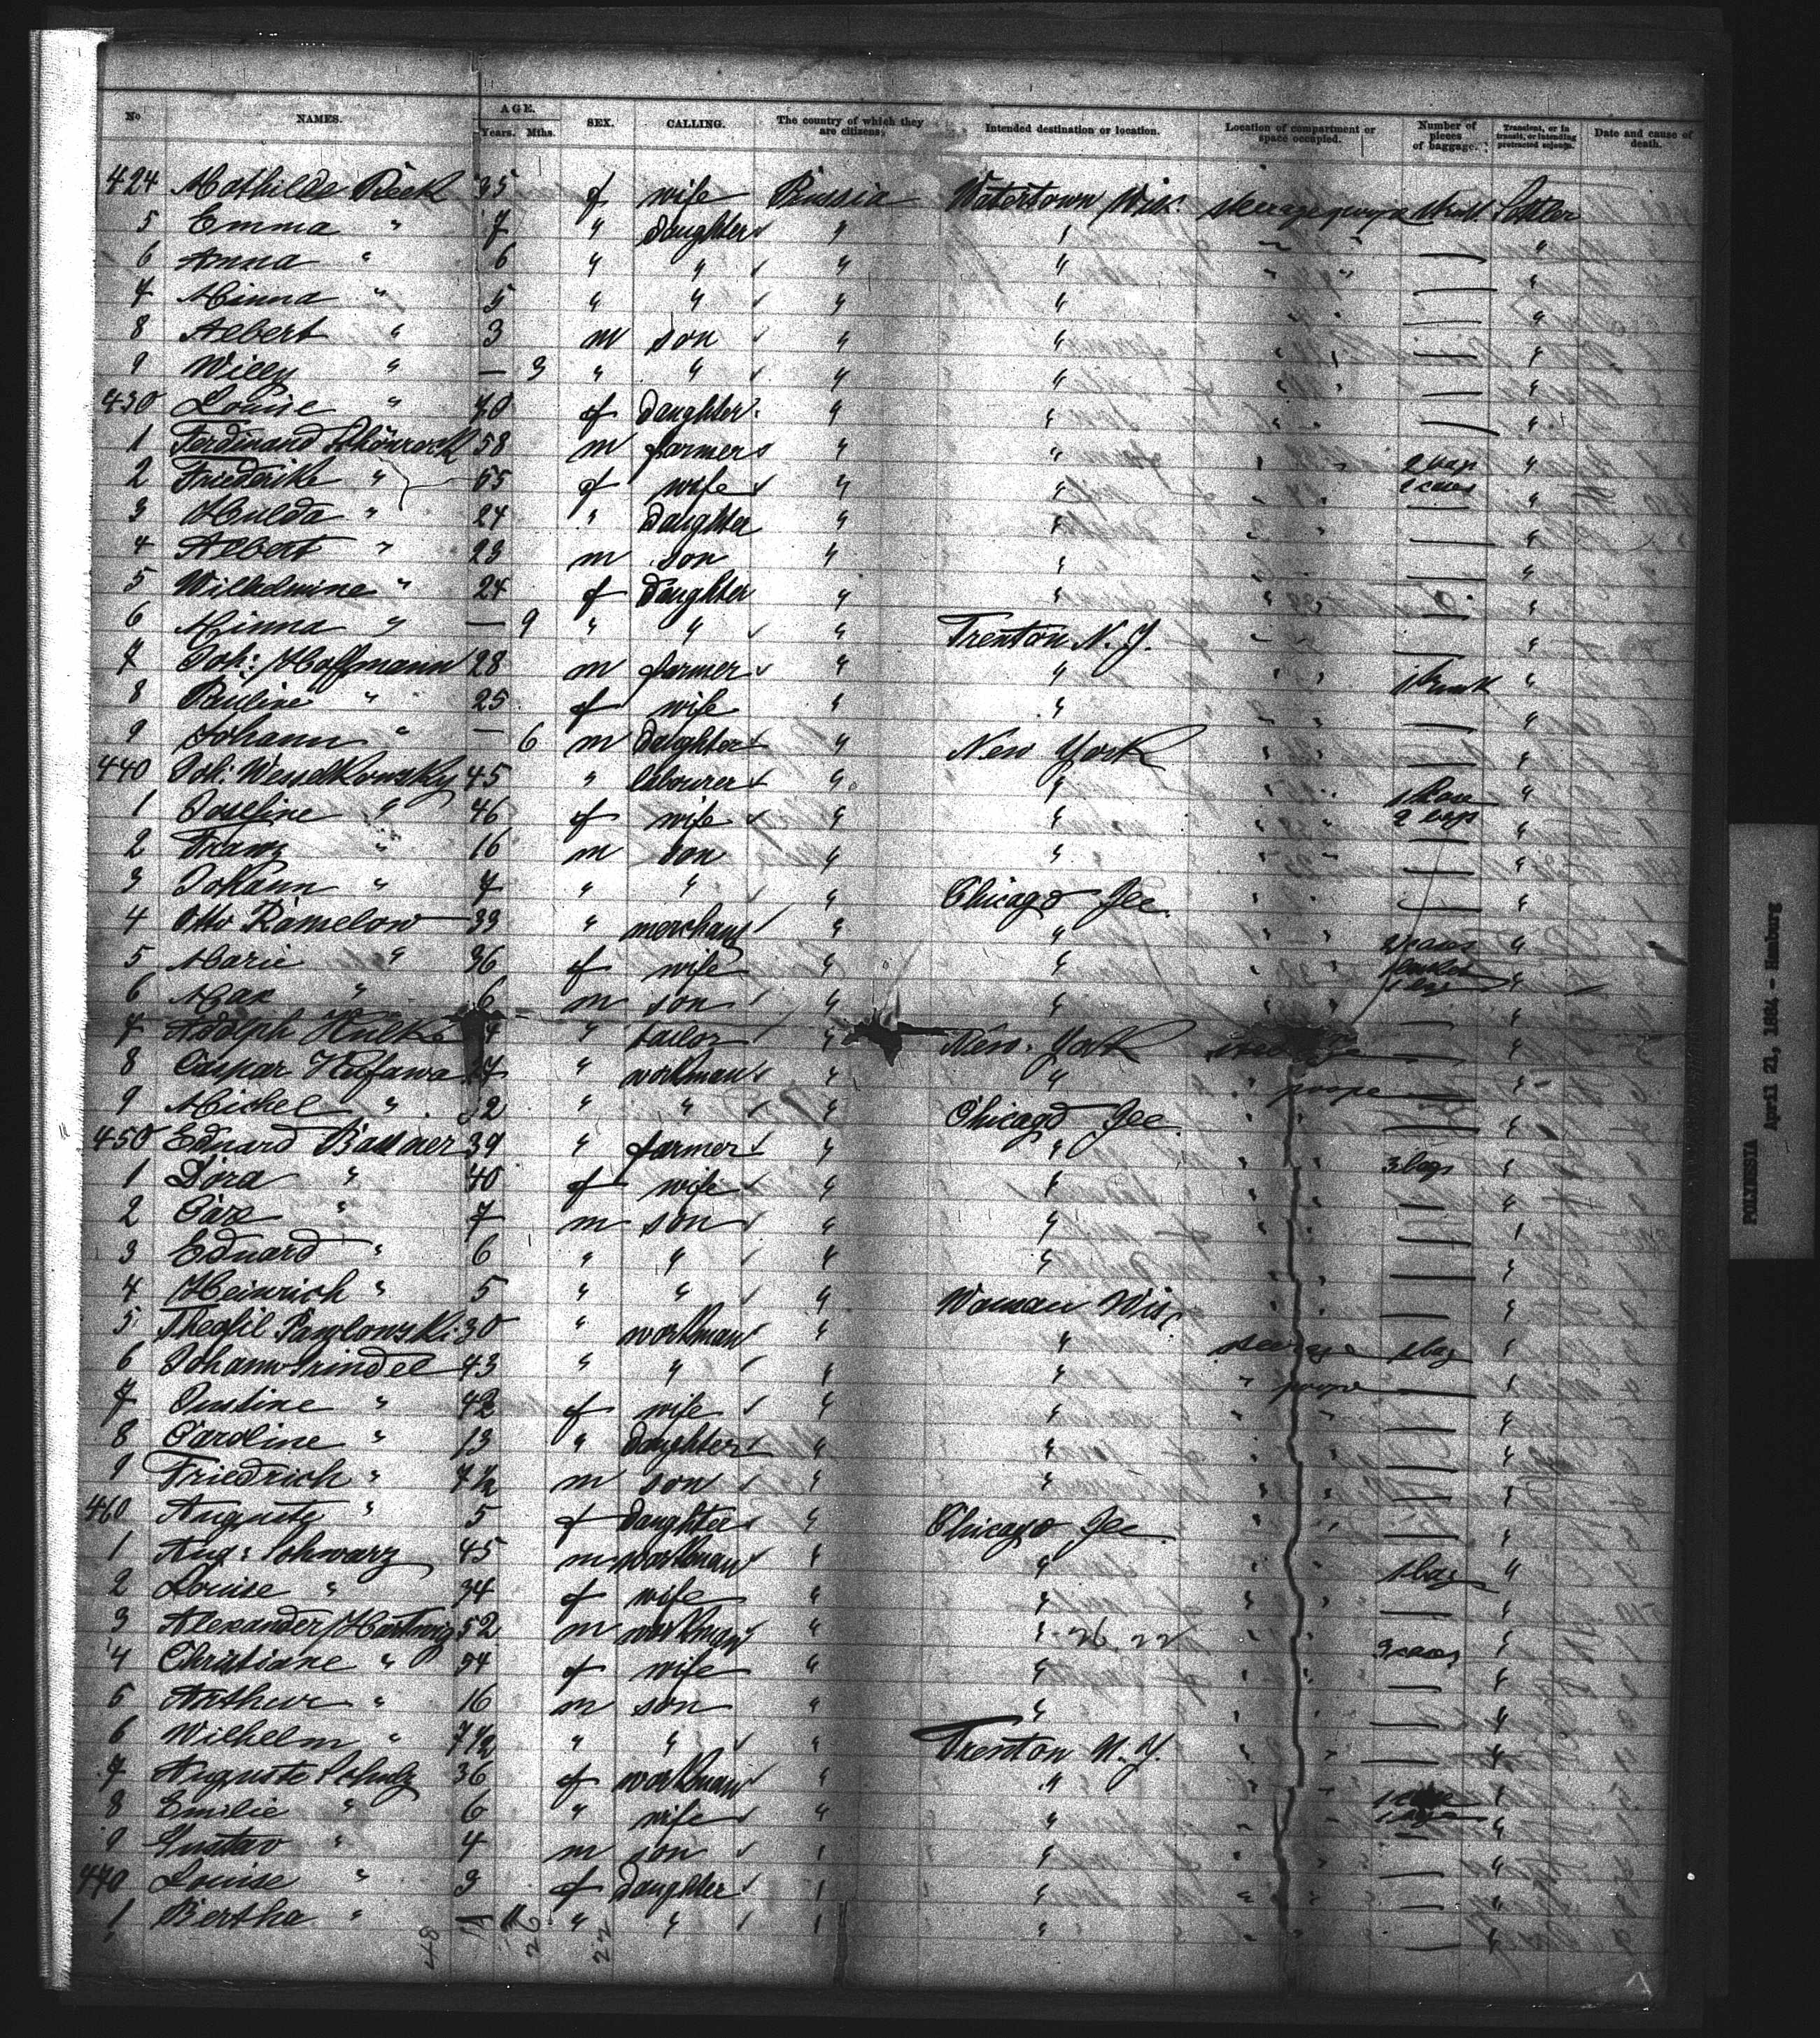 No NAMES. AGE. Years. Mths. SEX. CALLING. The country of which they are citizens. Intended destination or location. Location of compartment or space occupied. Number of pieces of baggage. Transient, or in transit, or intending protracted sojourn. Date and cause of death.
424 Mathilde 35 f wife Prussia Watertown Wis. Settler
5 Emma " 7 " daughter " " "
6 Anna " 6 " " " " "
7 Minna " 5 " " " " "
8 Albert " 3 m son " " "
9 Willy " — 3 " " " " — "
430 Louise " f daughter " " — "
1 Ferdinand Schönrock 58 m farmer " " "
2 Friederike " 55 f wife " " "
3 Hulda " 24 " daughter " " — "
4 Albert " 23 m son " " — "
5 Wilhelmine " 24 f daughter " " — "
6 Minna " — 9 " " " Trenton N. J. — "
7 Joh: Hoffmann 28 m farmer " " "
8 Pauline " 25 f wife " " — "
9 Johann " — 6 m daughter " New York — "
440 Joh: 45 " labourer " " "
1 Josefine " 46 f wife " " "
2 Franz " 16 m son " " — "
3 Johann " 7 " " " Chicago Ill. — "
4 Otto Ramelow 33 " merchant " " "
5 Marie " 36 f wife " " "
6 Max " 6 m son " " — "
7 Adolph " tailor " New York steerage — "
8 Caspar " workman " " " poope — "
9 Michel " " " " Chicago Ill. — "
450 Eduard 39 " farmer " " 3 bags "
1 Dora " 40 f wife " " — "
2 Carl " 7 m son " " — "
3 Eduard " 6 " " " " — "
4 Heinrich " 5 " " " Wausau Wis. — "
5 Theofil Pawlowski 30 " workman " " steerage 1 bag "
6 Johann Grindel 43 " " " " " poope — "
7 Justine " 42 f wife " " — "
8 Caroline " 13 " daughter " " — "
9 Friedrich " 7½ m son " " — "
460 Auguste " 5 f daughter " Chicago Ill. — "
1 Aug: Schwarz 45 m workman " " 1 bag "
2 Louise " 34 f wife " " — "
3 Alexander Hartwig 52 m workman " " 26 22 "
4 Christiane " 54 f wife " " — "
5 Arthur " 16 m son " " — "
6 Wilhelm " 7½ " " " Trenton N. J. — "
7 Auguste Schulz 36 f workman " " "
8 Emilie " 6 " wife " " "
9 Gustav " 4 m son " " — "
470 Louise " 3 f daughter " " — "
1 Bertha " — 11 " " " " — "
48 26 22
POLYNESIA April 21, 1884 - Hamburg